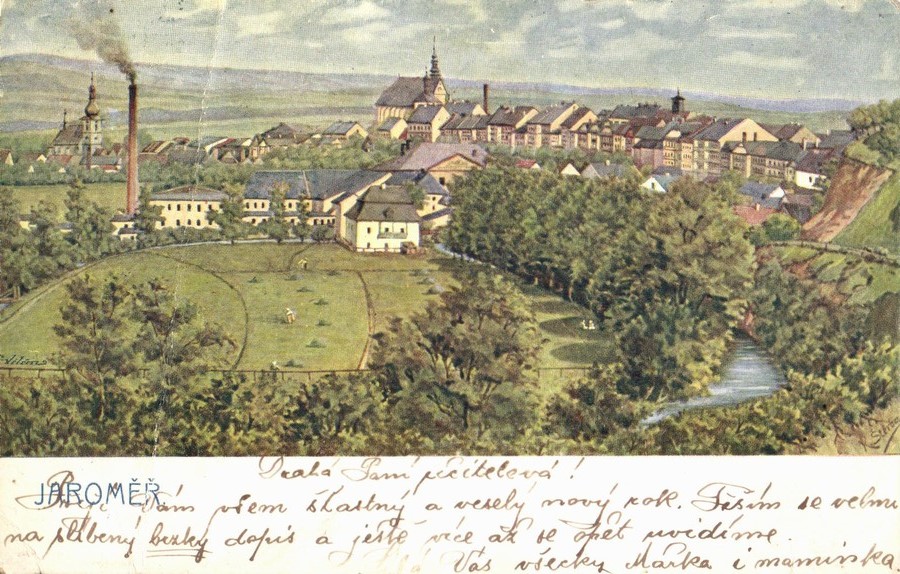 JAROMĚŘ.
Drahá Paní učitelová!
Vám všem šťastný a veselý nový rok. Těším se velmi
na slíbený hezký dopis a ještě více až se opět uvidíme.
Vás všecky Mařka i maminka.